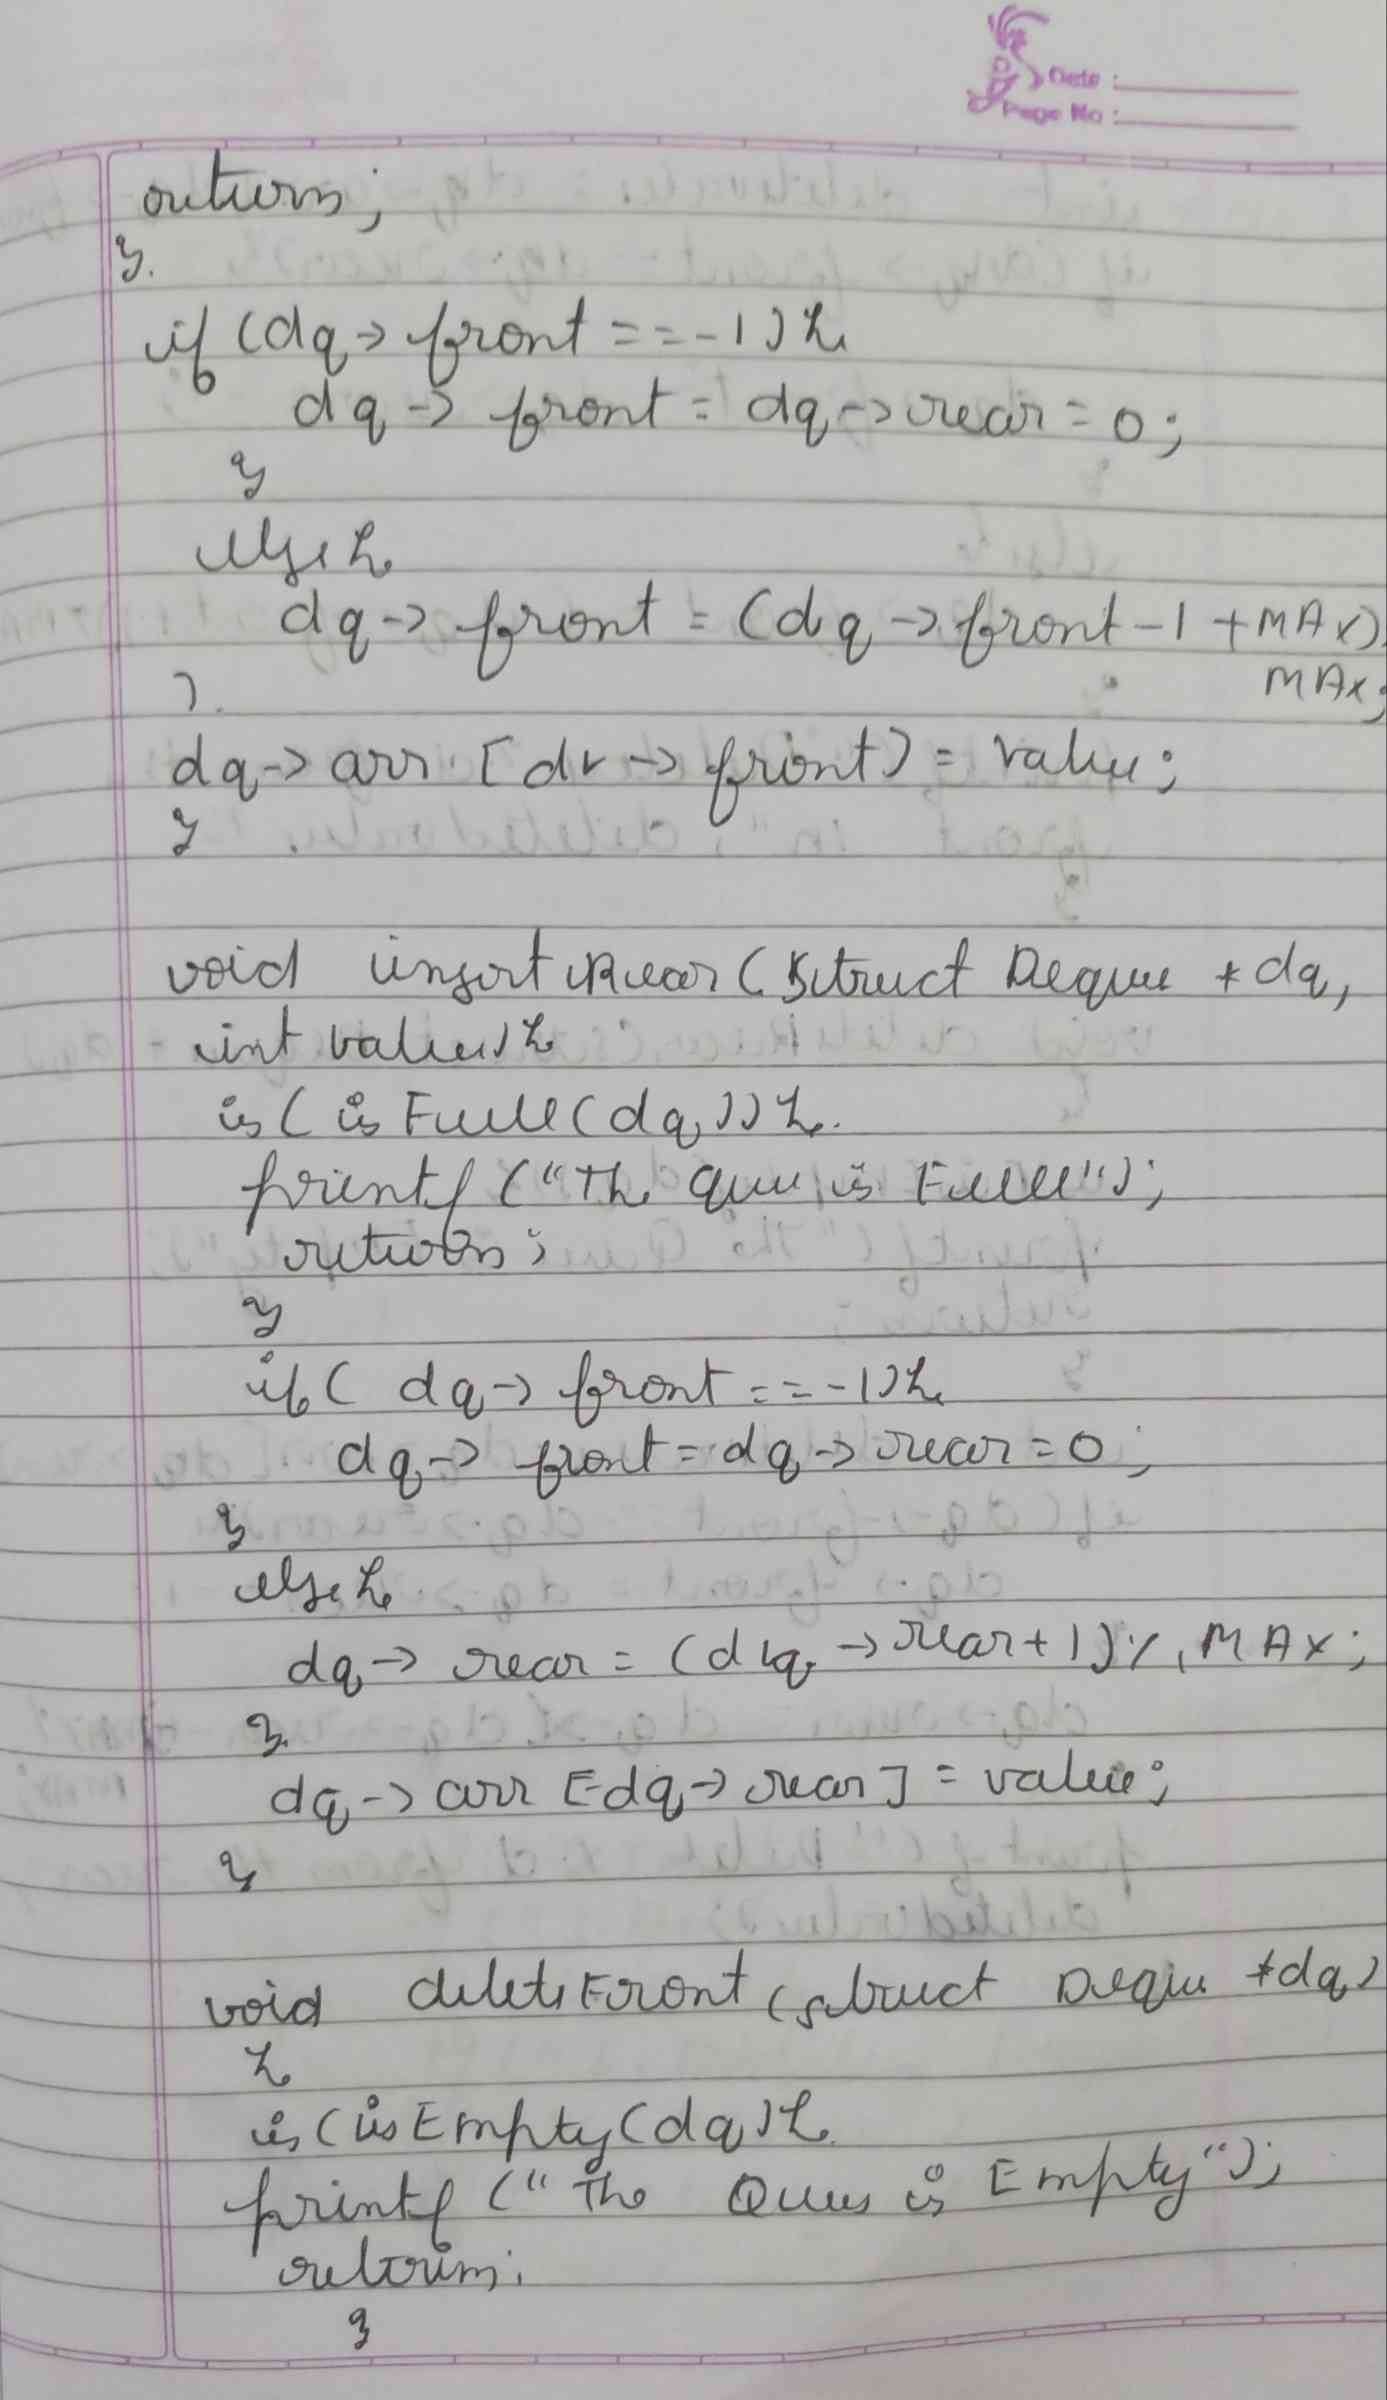 Date :
Page No :
return;
}.
if (dq -> front == -1) {
dq -> front = dq -> rear = 0;
}
else {
dq -> front = (dq -> front - 1 + MAX)
MAX;
}.
dq -> arr [dr -> front] = value;
}
void insertRear (struct Deque * dq,
int value) {
is ( is Full (dq)) {.
printf ("The queue is Full");
return;
}
if ( dq -> front == -1) {
dq -> front = dq -> rear = 0;
}
else {
dq -> rear = (dq -> rear + 1) % MAX;
}.
dq -> arr [dq -> rear] = value;
}
void deleteFront (struct Deque *dq)
{
is (isEmpty (dq) {
printf (" The Queue is Empty");
return;
}